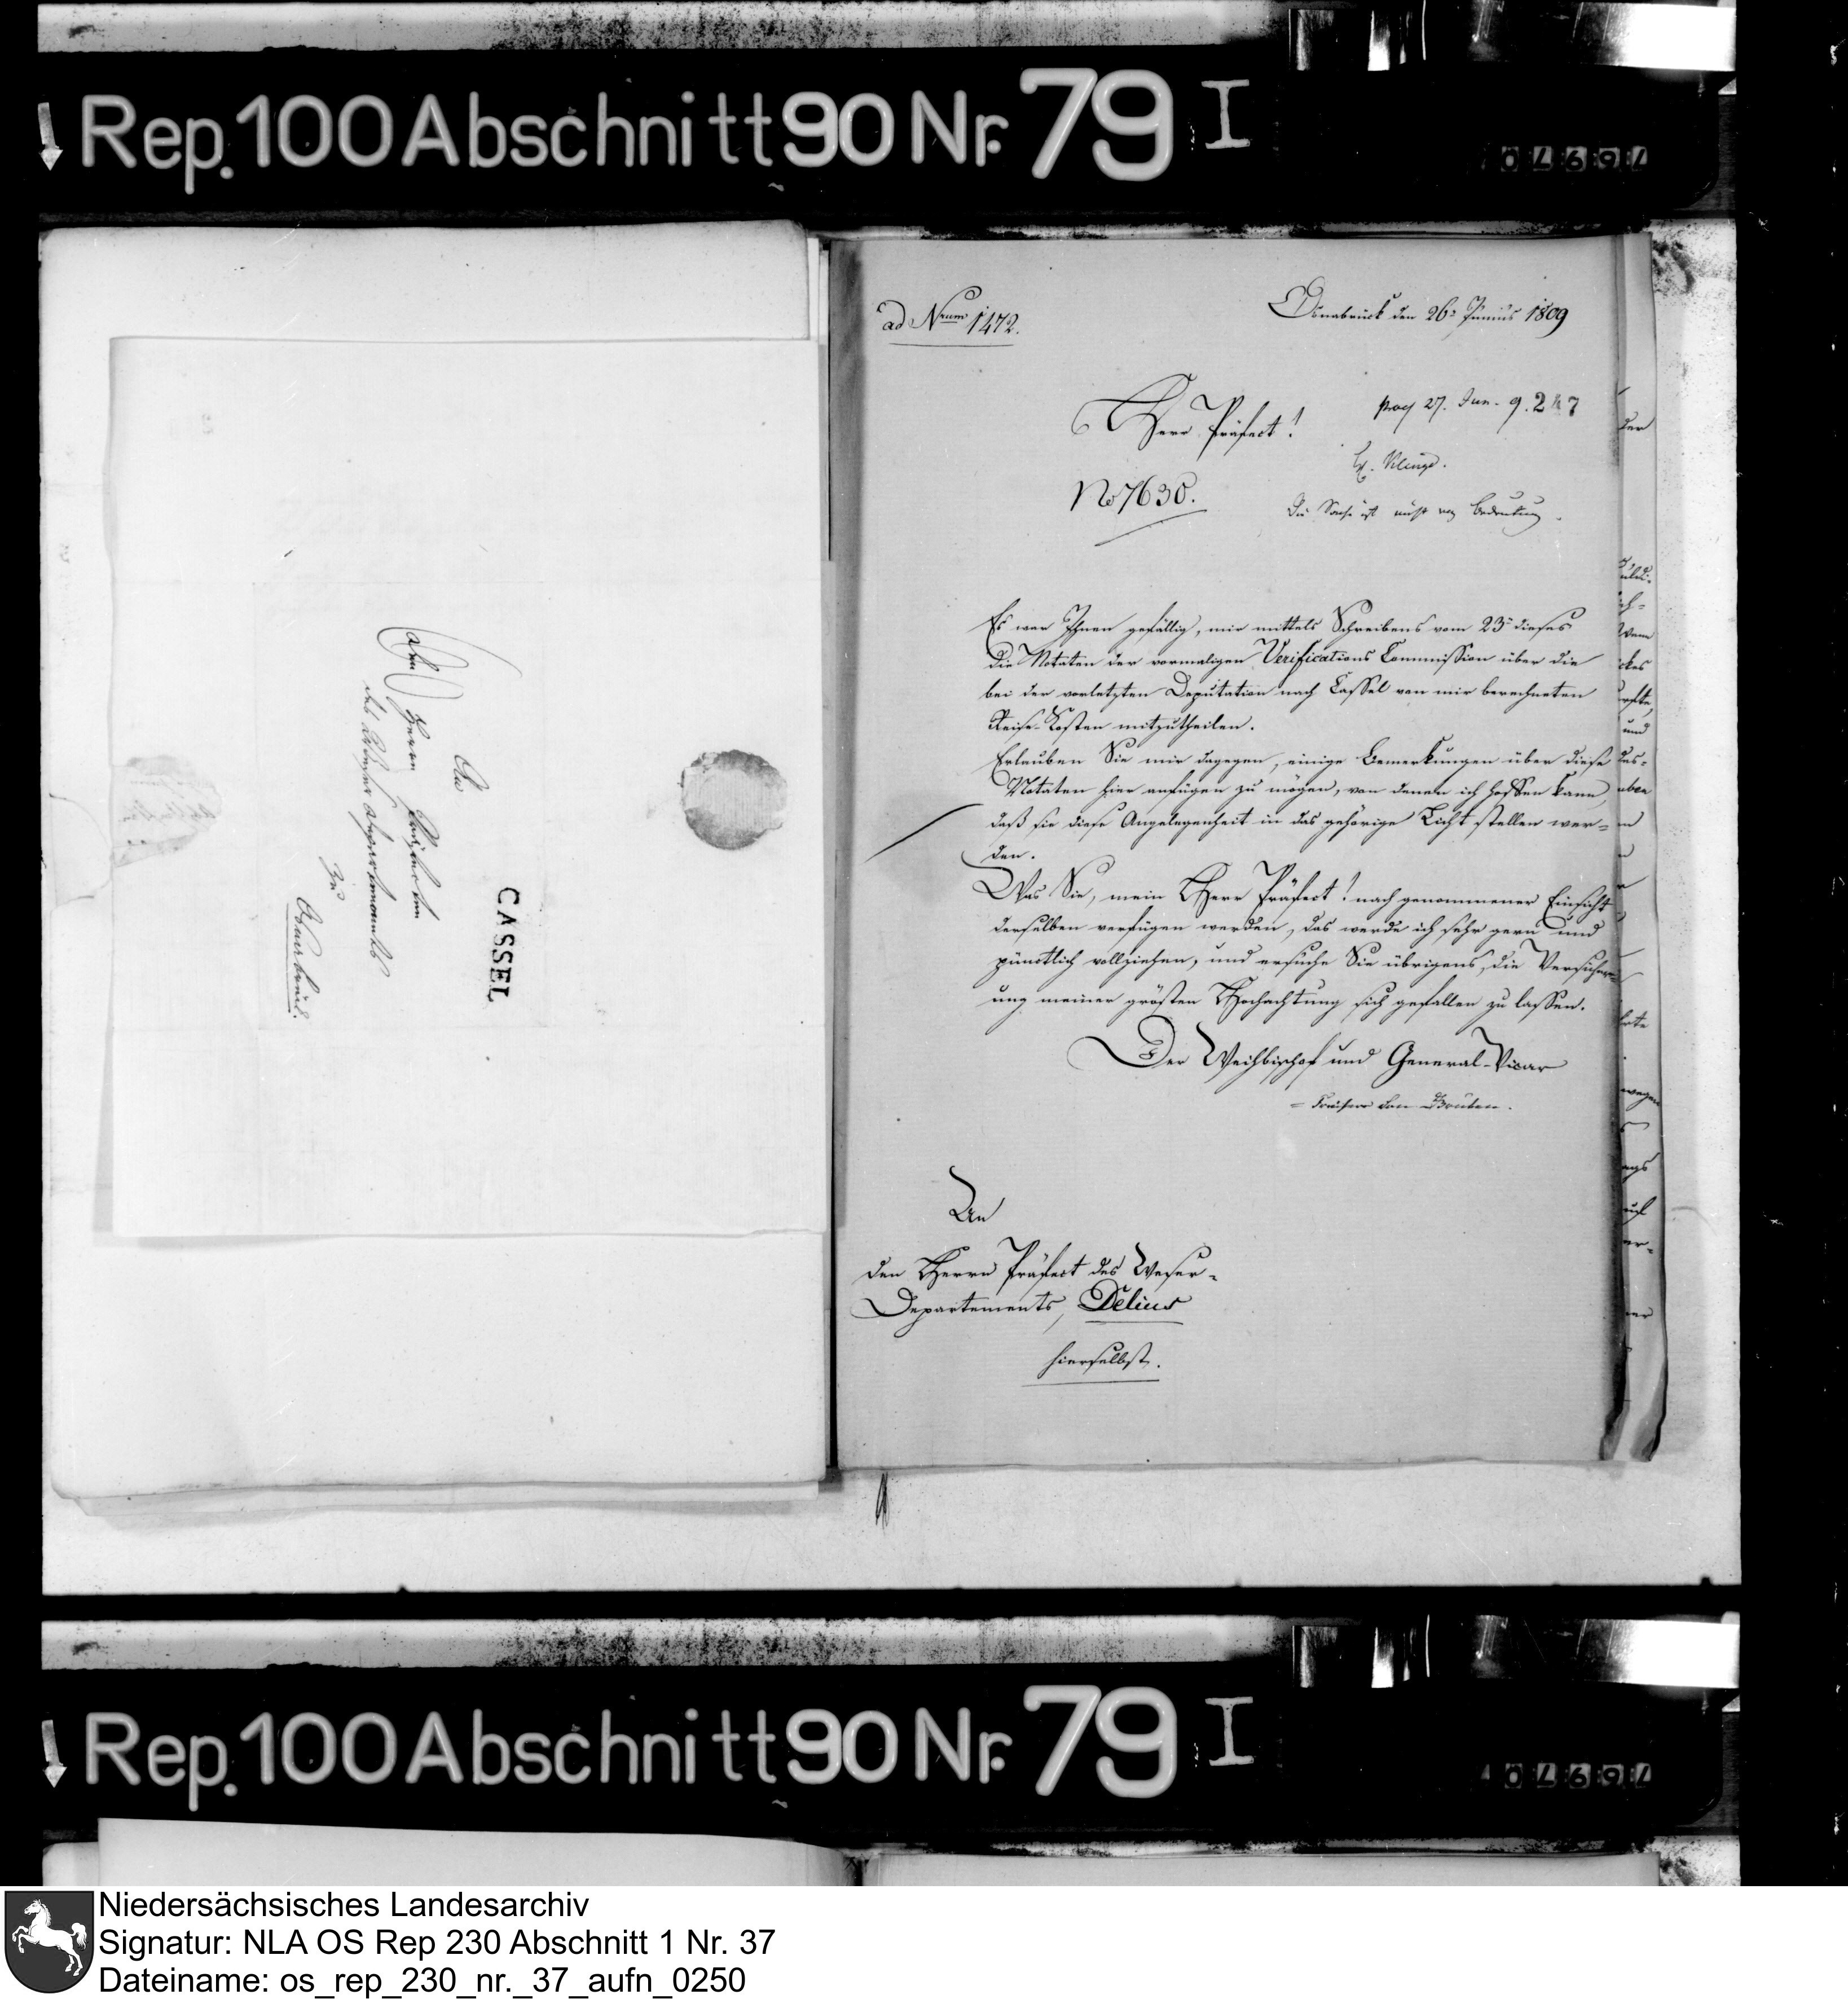 Rep. 100 Abschnitt 90 Nr. 79 I
CASSEL
An
den Herrn Präfecten
des Weser Departements
zu
Osnabrück.
ad Nrum 1472.
Osnabrück den 26t Junius 1809
Herr Präfect!
27. Jun. 9. 247
No 7630.
Die Sache ist nicht von Bedeutung.
Es war Ihnen gefällig, mir mittels Schreibens vom 23t dieses
die Notaten der vormaligen Verifications Commission über die
bei der vorletzten Deputation nach Cassel von mir berechneten
Reise-Kosten mitzutheilen.
Erlauben Sie mir dagegen, einige Bemerkungen über diese
Notaten hier anfügen zu mögen, von denen ich hoffen kann,
daß sie diese Angelegenheit in das gehörige Licht stellen wer=
den.
Was Sie, mein Herr Präfect! nach genommener Einsicht
derselben verfügen werden, das werde ich sehr gern und
pünctlich vollziehen, und ersuche Sie übrigens, die Versicher=
ung meiner grösten Hochachtung sich gefallen zu lassen.
Der Weihbischof und General-Vicar
An
den Herrn Präfect des Weser-
Departements, Delius
hierselbst.
Rep. 100 Abschnitt 90 Nr. 79 I
Niedersächsisches Landesarchiv
Signatur: NLA OS Rep 230 Abschnitt 1 Nr. 37
Dateiname: os_rep_230_nr._37_aufn_0250